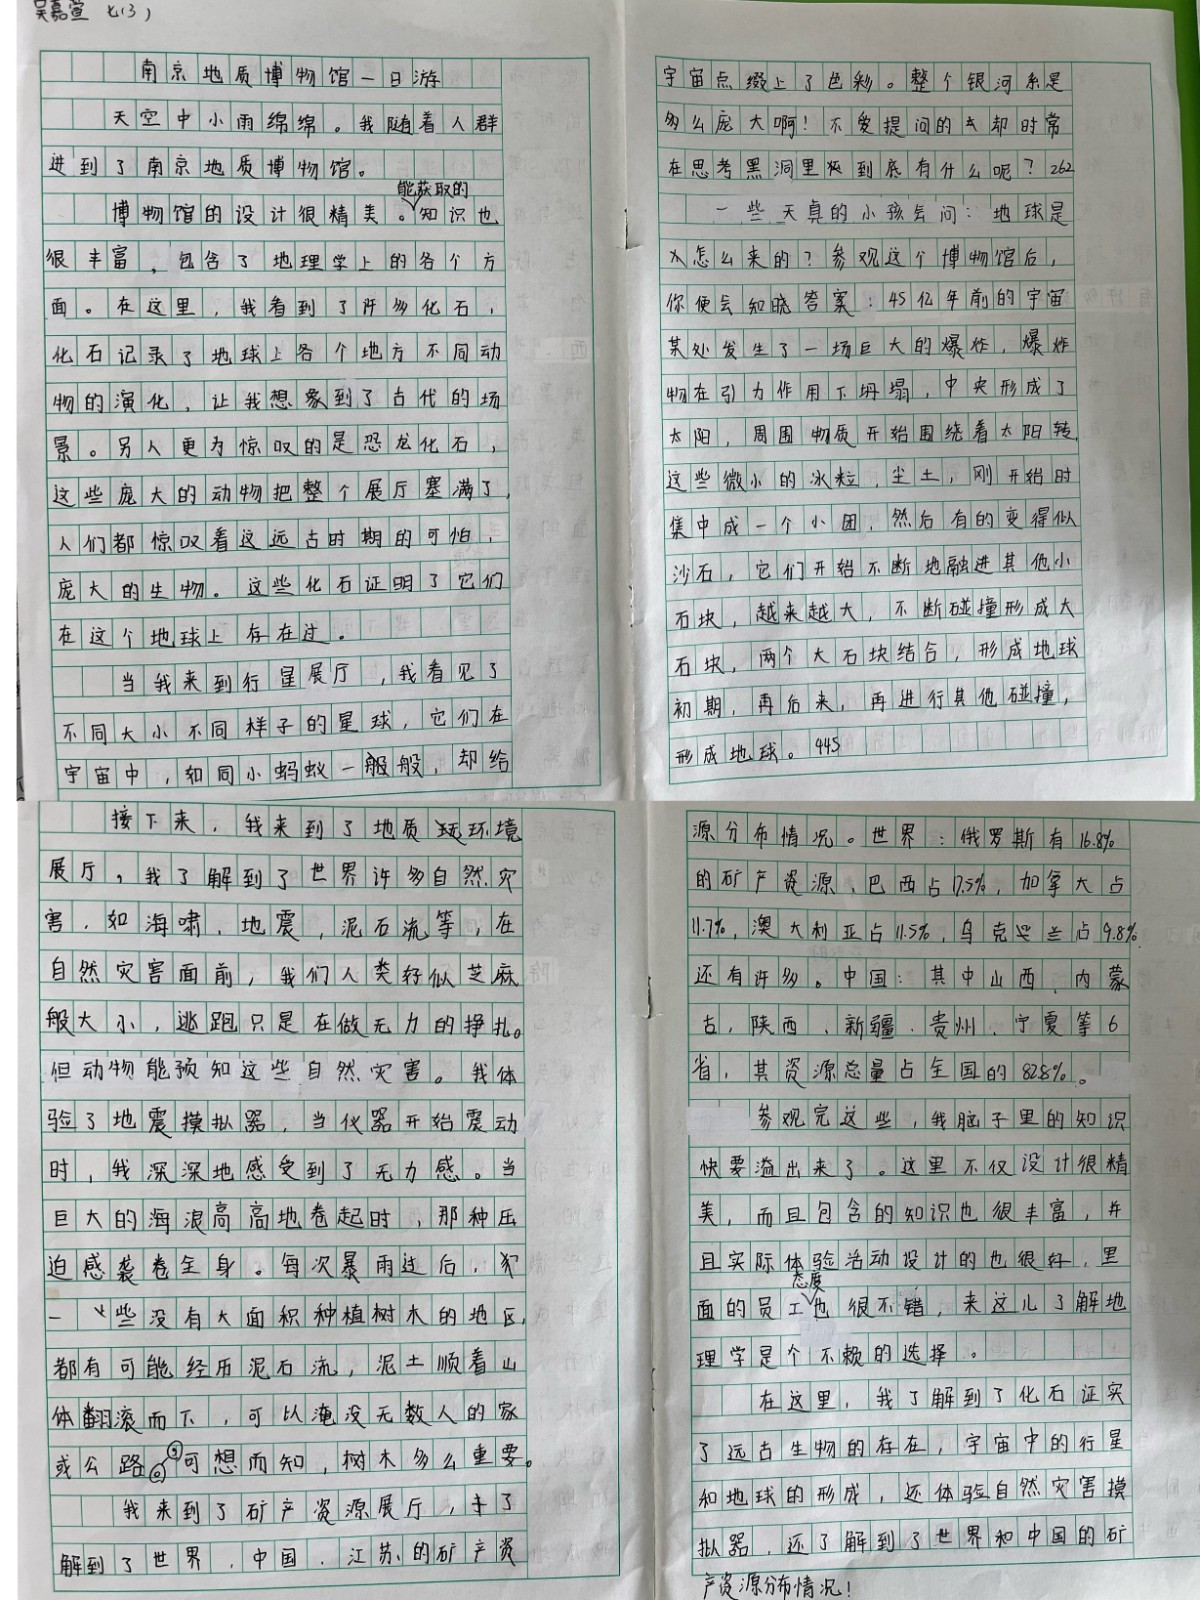 吴嘉萱 七(3)
南京地质博物馆一日游
天空中小雨绵绵。我随着人群
进到了南京地质博物馆。
能获取的
博物馆的设计很精美。知识也
很丰富，包含了地理学上的各个方
面。在这里，我看到了许多化石，
化石记录了地球上各个地方不同动
物的演化，让我想象到了古代的场
景。另人更为惊叹的是恐龙化石，
这些庞大的动物把整个展厅塞满了，
人们都惊叹着这远古时期的可怕，
庞大的生物。这些化石证明了它们
在这个地球上存在过。
当我来到行星展厅，我看见了
不同大小不同样子的星球，它们在
宇宙中，如同小蚂蚁一般般，却给
宇宙点缀上了色彩。整个银河系是
多么庞大啊！不爱提问的我却时常
在思考黑洞里面到底有什么呢？262
一些天真的小孩会问：地球是
怎么来的？参观这个博物馆后，
你便会知晓答案：45亿年前的宇宙
某处发生了一场巨大的爆炸，爆炸
物在引力作用下坍塌，中央形成了
太阳，周围物质开始围绕着太阳转，
这些微小的冰粒，尘土，刚开始时
集中成一个小团，然后有的变得似
沙石，它们开始不断地融进其他小
石块，越来越大，不断碰撞形成大
石块，两个大石块结合，形成地球
初期，再后来，再进行其他碰撞，
形成地球。445
接下来，我来到了地质环环境
展厅，我了解到了世界许多自然灾
害，如海啸，地震，泥石流等，在
自然灾害面前，我们人类好似芝麻
般大小，逃跑只是在做无力的挣扎。
但动物能预知这些自然灾害。我体
验了地震摸拟器，当仪器开始震动
时，我深深地感受到了无力感。当
巨大的海浪高高地卷起时，那种压
迫感袭卷全身。每次暴雨过后，
一些没有大面积种植树木的地区，
都有可能经历泥石流，泥土顺着山
体翻滚而下，可以淹没无数人的家
或公路。可想而知，树木多么重要。
我来到了矿产资源展厅，了
解到了世界，中国，江苏的矿产资
源分布情况。世界：俄罗斯有16.8%
的矿产资源，巴西占17.5%，加拿大占
11.7%，澳大利亚占11.5%，乌克兰占9.8%
还有许多。中国：其中山西，内蒙
古，陕西，新疆，贵州，宁夏等6
省，其资源总量占全国的82.8%。
参观完这些，我脑子里的知识
快要溢出来了。这里不仅设计很精
美，而且包含的知识也很丰富，并
且实际体验活动设计的也很好，里
态度
面的员工也很不错，来这儿了解地
理学是个不赖的选择。
在这里，我了解到了化石证实
了远古生物的存在，宇宙中的行星
和地球的形成，还体验自然灾害摸
拟器，还了解到了世界和中国的矿
产资源分布情况！